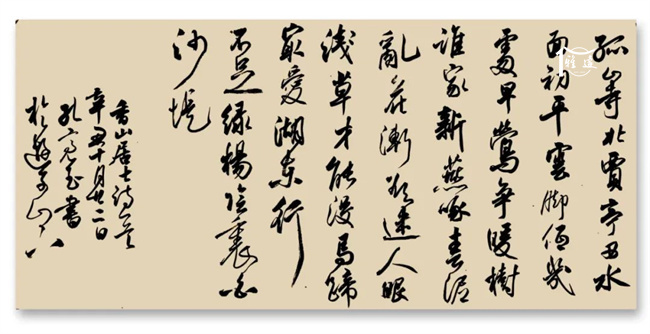 孤山寺北賈亭西水
面初平雲脚低幾
處早鶯爭暖樹
誰家新燕啄春泥
亂花漸欲迷人眼
淺草才能沒馬蹄
最愛湖東行
不足綠楊陰裏白
沙堤
香山居士詩一首
辛丑十月廿二日
孔玉書
於遊子山下